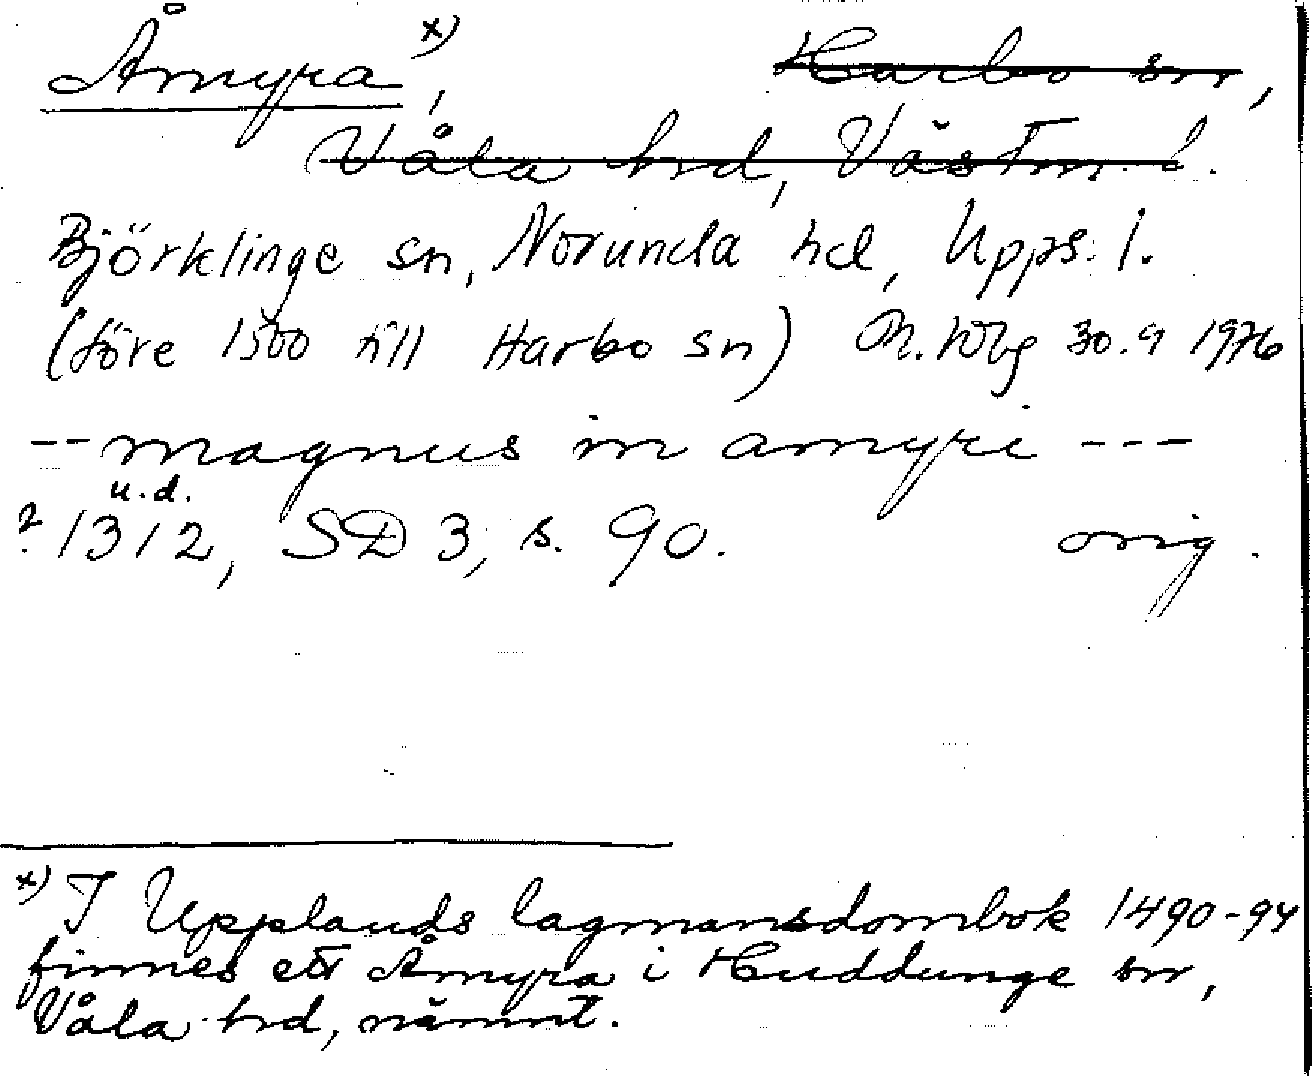 Åmyra x), Harbo sn,
Våla hd, Västm. l.
Björklinge sn, Norunda hd, Upps. l.
(före 1500 till Harbo sn) M. Wbg 30.9 1976
-- magnus in amyri ---
u.d.
? 1312, SD 3, s. 90. orig.
x) I Upplands lagmansdombok 1490-94
finnes ett Åmyra i Huddunge sn,
Våla hd, nämnt.